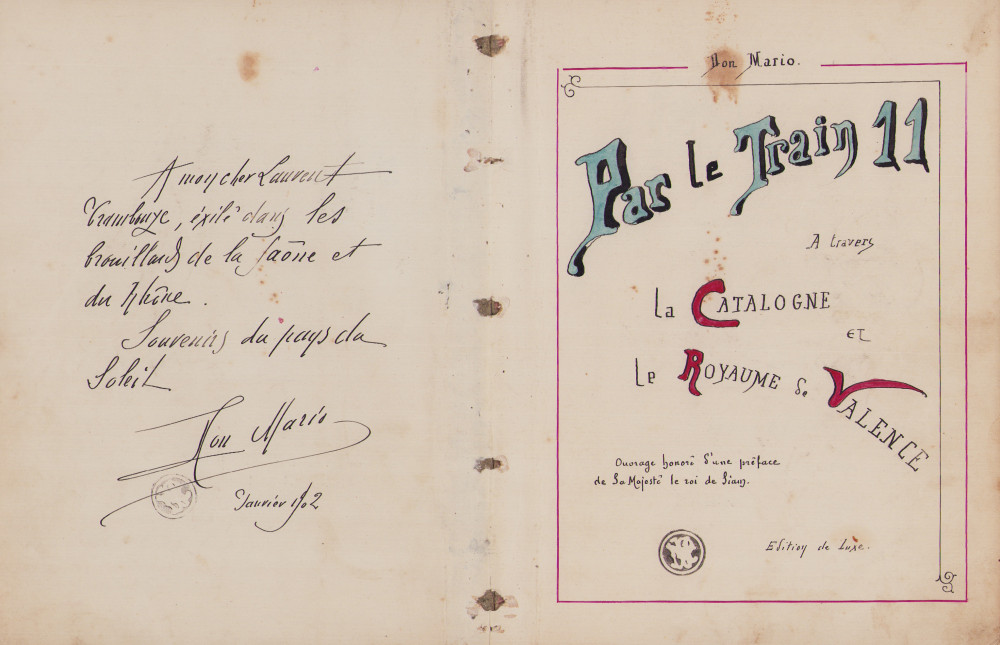 A mon cher Laurent
éxilé dans les
brouillards de la Saône et
du Rhône.
Souvenirs du pays du
Soleil
Don Mario
Janvier 1902
Don Mario.
Par le Train 11
A travers
la CATALOGNE
ET
le ROYAUME de VALENCE
Ouvrage honoré d'une préface
de Sa Majesté le roi de Siam.
Edition de Luxe.